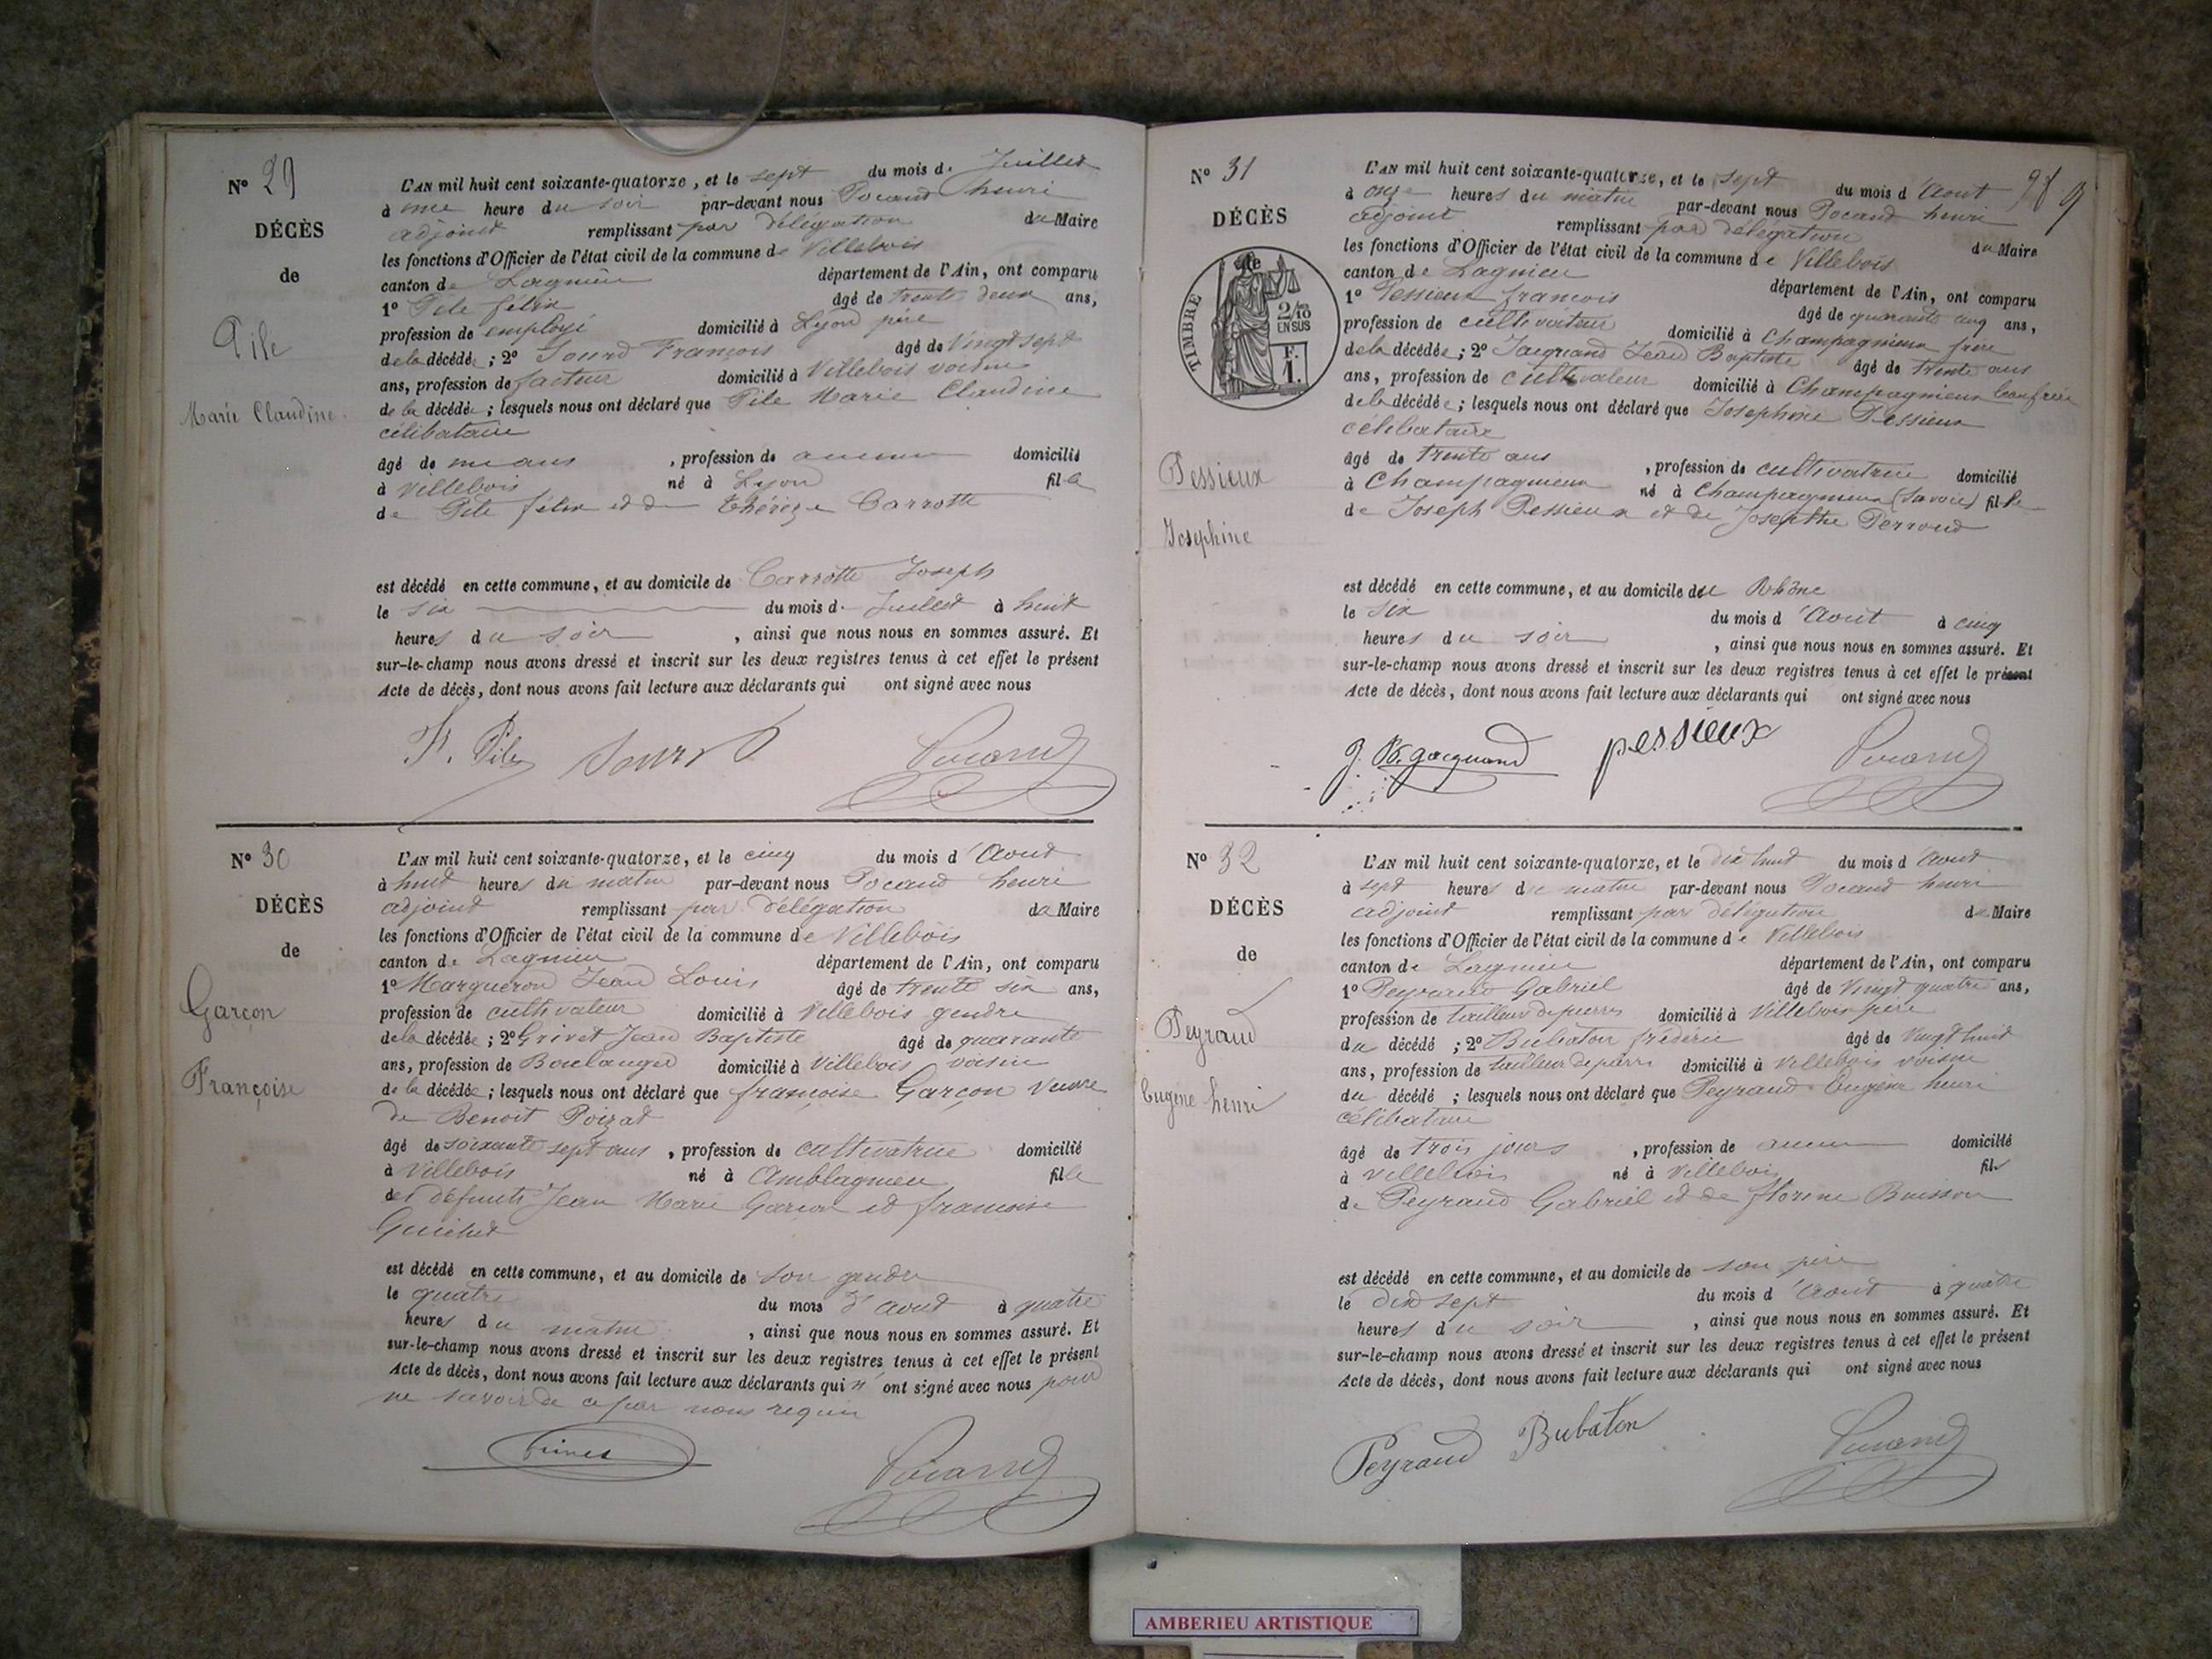 N° 29
DÉCÈS
de
Pile
Marie Claudine
L'AN mil huit cent soixante-quatorze, et le sept du mois de Juillet
à une heure du soir par-devant nous Pocard henri
adjoint remplissant par délégation du Maire
les fonctions d'Officier de l'état civil de la commune de Villebois
canton de Lagnieu département de l'Ain, ont comparu
1° Pile félix âgé de trente deux ans,
profession de employé domicilié à Lyon père
de la décédée; 2° Sourd François âgé de Vingt sept
ans, profession de facteur domicilié à Villebois voisin
de la décédée; lesquels nous ont déclaré que Pile Marie Claudine
célibataire
âgé de un ans, profession de aucune domicilié
à Villebois né à Lyon fille
de Pile félix et de Thérèze Carrotte
est décédé en cette commune, et au domicile de Carrotte Joseph
le six du mois de Juillet à huit
heures du soir, ainsi que nous nous en sommes assuré. Et
sur-le-champ nous avons dressé et inscrit sur les deux registres tenus à cet effet le présent
Acte de décès, dont nous avons fait lecture aux déclarants qui ont signé avec nous
F. Pile Sourd Pocard
N° 30
DÉCÈS
de
Garçon
Françoise
L'AN mil huit cent soixante-quatorze, et le cinq du mois d'Aout
à huit heures du matin par-devant nous Pocard henri
adjoint remplissant par délégation du Maire
les fonctions d'Officier de l'état civil de la commune de Villebois
canton de Lagnieu département de l'Ain, ont comparu
1° Margueron Jean Louis âgé de trente six ans,
profession de cultivateur domicilié à Villebois gendre
de la décédée; 2° Grivet Jean Baptiste âgé de quarante
ans, profession de Boulanger domicilié à Villebois voisin
de la décédée; lesquels nous ont déclaré que françoise Garçon Veuve
de Benoit Poizat
âgé de soixante sept ans, profession de cultivatrice domicilié
à Villebois né à Amblagnieu fille
des défunts Jean Marie Garçon et françoise
est décédé en cette commune, et au domicile de son gendre
le quatre du mois d'aout à quatre
heures du matin, ainsi que nous nous en sommes assuré. Et
sur-le-champ nous avons dressé et inscrit sur les deux registres tenus à cet effet le présent
Acte de décès, dont nous avons fait lecture aux déclarants qui n'ont signé avec nous pour
ne savoir de ce par nous requis
Pocard
N° 31
DÉCÈS
de
TIMBRE
2/10
EN SUS
F.
1.
Pessieux
Josephine
L'AN mil huit cent soixante-quatorze, et le sept du mois d'Aout
à onze heures du matin par-devant nous Pocard henri
adjoint remplissant par délégation du Maire
les fonctions d'Officier de l'état civil de la commune de Villebois
canton de Lagnieu département de l'Ain, ont comparu
1° Pessieux françois âgé de quarante cinq ans,
profession de cultivateur domicilié à Champagneux frère
de la décédée; 2° Jacquand Jean Baptiste âgé de trente ans
ans, profession de cultivateur domicilié à Champagneux beaufrère
de la décédée; lesquels nous ont déclaré que Josephine Pessieux
célibataire
âgé de trente ans, profession de cultivatrice domicilié
à Champagneux né à Champagneux (Savoie) fille
de Joseph Pessieux et de Josephte Perroud
est décédé en cette commune, et au domicile du Rhône
le six du mois d'Aout à cinq
heures du soir, ainsi que nous nous en sommes assuré. Et
sur-le-champ nous avons dressé et inscrit sur les deux registres tenus à cet effet le présent
Acte de décès, dont nous avons fait lecture aux déclarants qui ont signé avec nous
J. B. Jacquand pessieux Pocard
N° 32
DÉCÈS
de
Peyraud
Eugène henri
L'AN mil huit cent soixante-quatorze, et le dix huit du mois d'Aout
à sept heures du matin par-devant nous Pocard henri
adjoint remplissant par délégation du Maire
les fonctions d'Officier de l'état civil de la commune de Villebois
canton de Lagnieu département de l'Ain, ont comparu
1° Peyraud Gabriel âgé de Vingt quatre ans,
profession de tailleur de pierres domicilié à Villebois père
du décédé; 2° Bubaton frédéric âgé de Vingt huit
ans, profession de tailleur de pierre domicilié à Villebois voisin
du décédé; lesquels nous ont déclaré que Peyraud Eugène henri
célibataire
âgé de trois jours, profession de aucune domicilié
à Villebois né à Villebois fils
de Peyraud Gabriel et de florine Buisson
est décédé en cette commune, et au domicile de son père
le dix sept du mois d'Aout à quatre
heures du soir, ainsi que nous nous en sommes assuré. Et
sur-le-champ nous avons dressé et inscrit sur les deux registres tenus à cet effet le présent
Acte de décès, dont nous avons fait lecture aux déclarants qui ont signé avec nous
Peyraud Bubaton Pocard
AMBERIEU ARTISTIQUE